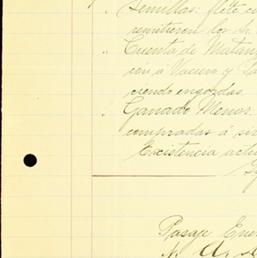 " Semillas: flete
remitieron los Sr.
" Cuenta de Matan
ción á Vacuno y
ciendo engordas
" Ganado Menor.
compradas á
Existencia actu
Pasaje Ene
N. A.